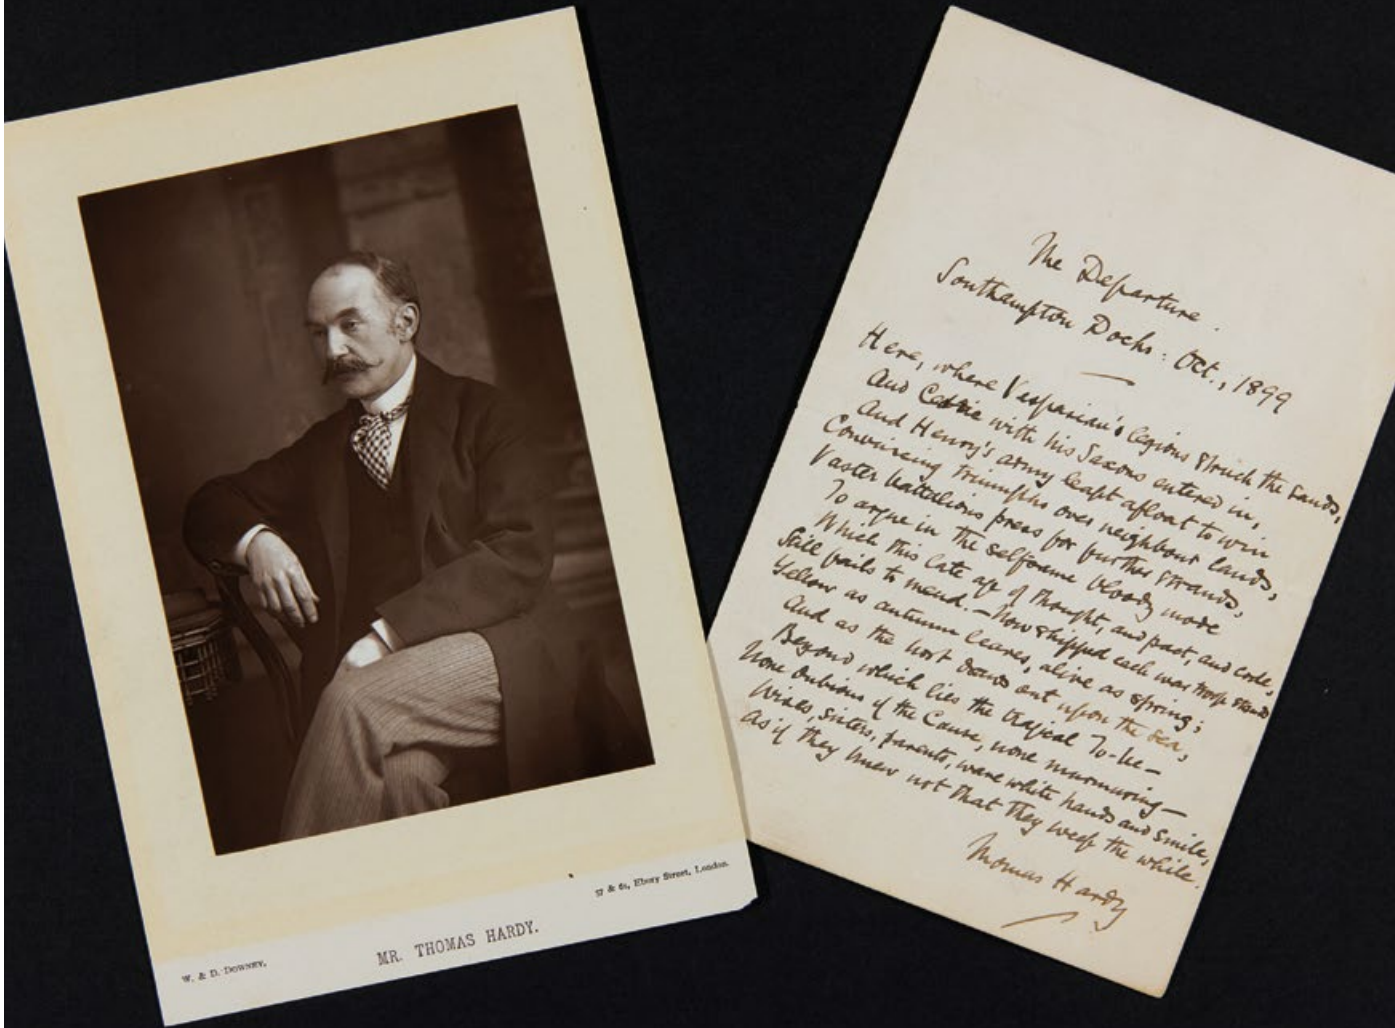 W. & D. DOWNEY,
57 & 61, Ebury Street, London.
MR. THOMAS HARDY.
The Departure.
Southampton Docks: Oct., 1899
Here, where Vespasian's legions struck the sands,
And Cerdic with his Saxons entered in,
And Henry's army leapt afloat to win
Convincing triumphs over neighbour lands,
Vaster battalions press for further strands,
To argue in the selfsame bloody mode
Which this late age of thought, and pact, and code,
Still fails to mend. - Now shipped each war troop
Yellow as autumn leaves, alive as spring;
And as the host draws out upon the sea,
Beyond which lies the tragical To-be—
None dubious of the Cause, none murmuring—
Wives, sisters, parents, wave white hands and smile,
As if they knew not that they weep the while.
Thomas Hardy